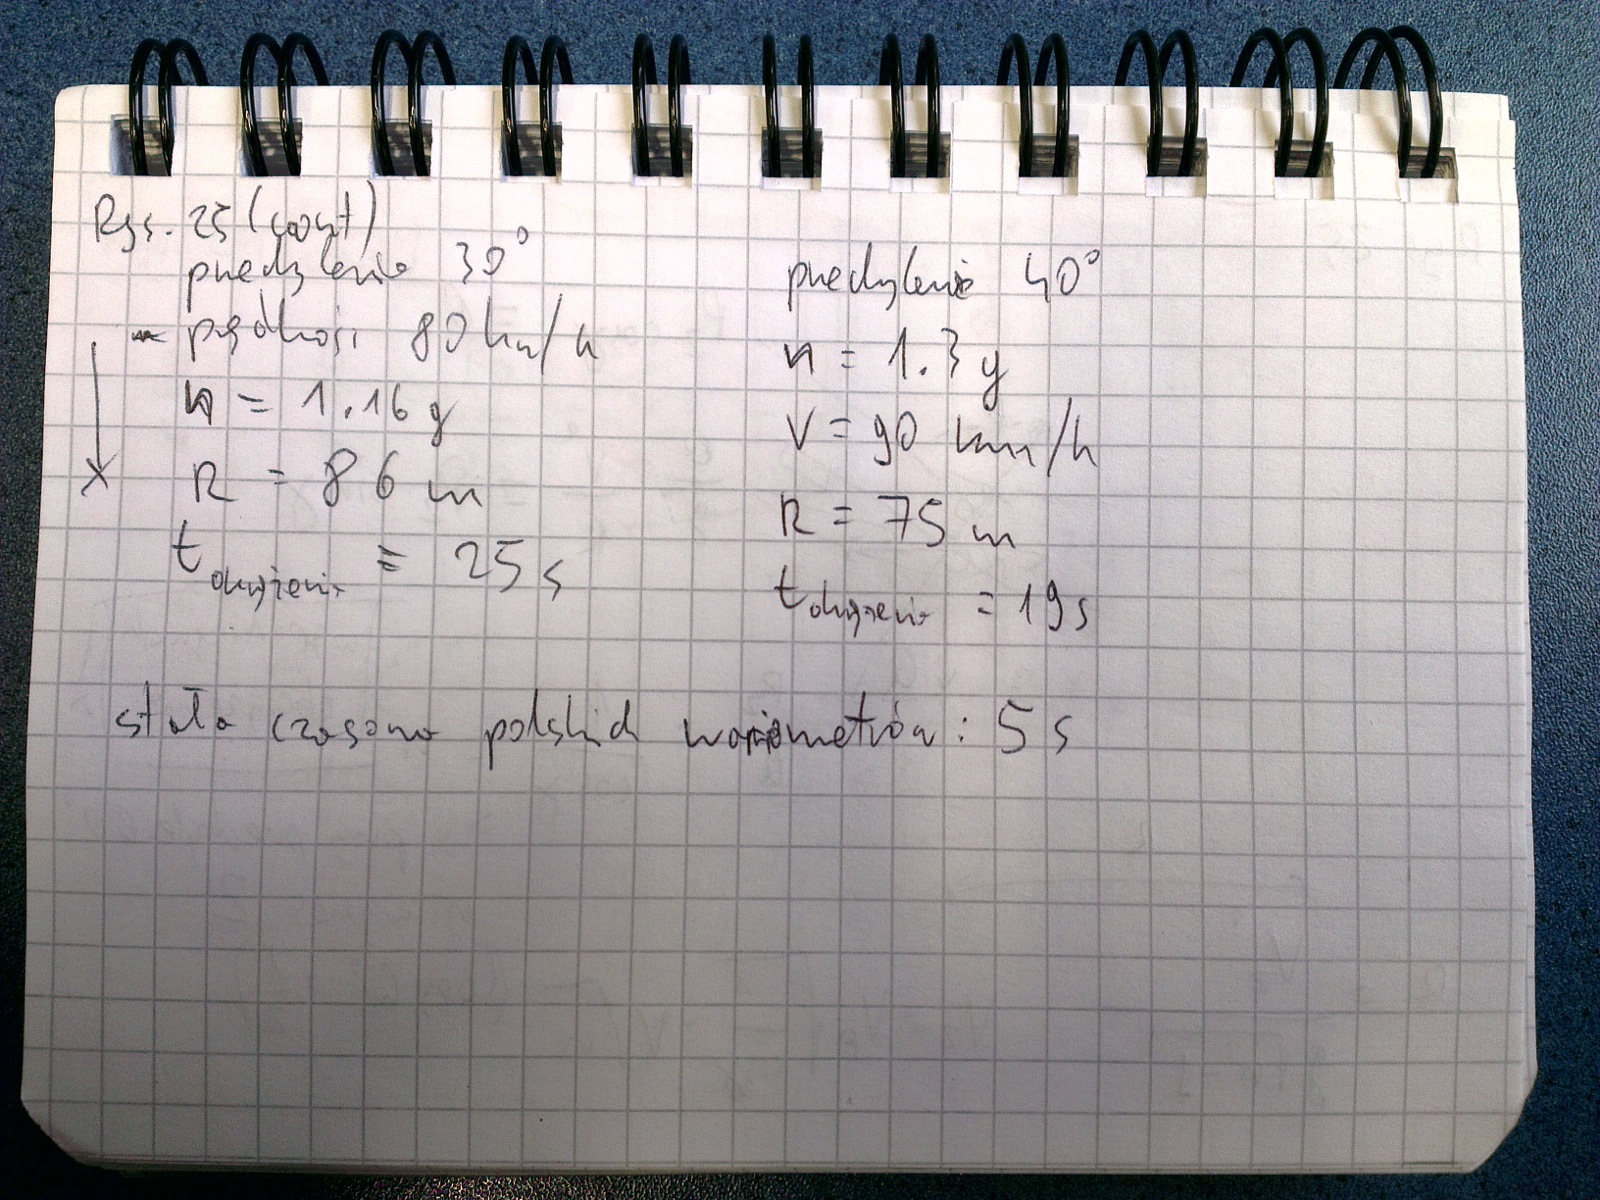 Rys. 25 (cont)
przechylenie 30°
- prędkość 80 km/h
n = 1.16 g
R = 86 m
t okrążenia = 25 s
przechylenie 40°
n = 1.3 g
V = 90 km/h
R = 75 m
t okrążenia = 19 s
stała czasowa polskich wariometrów: 5 s